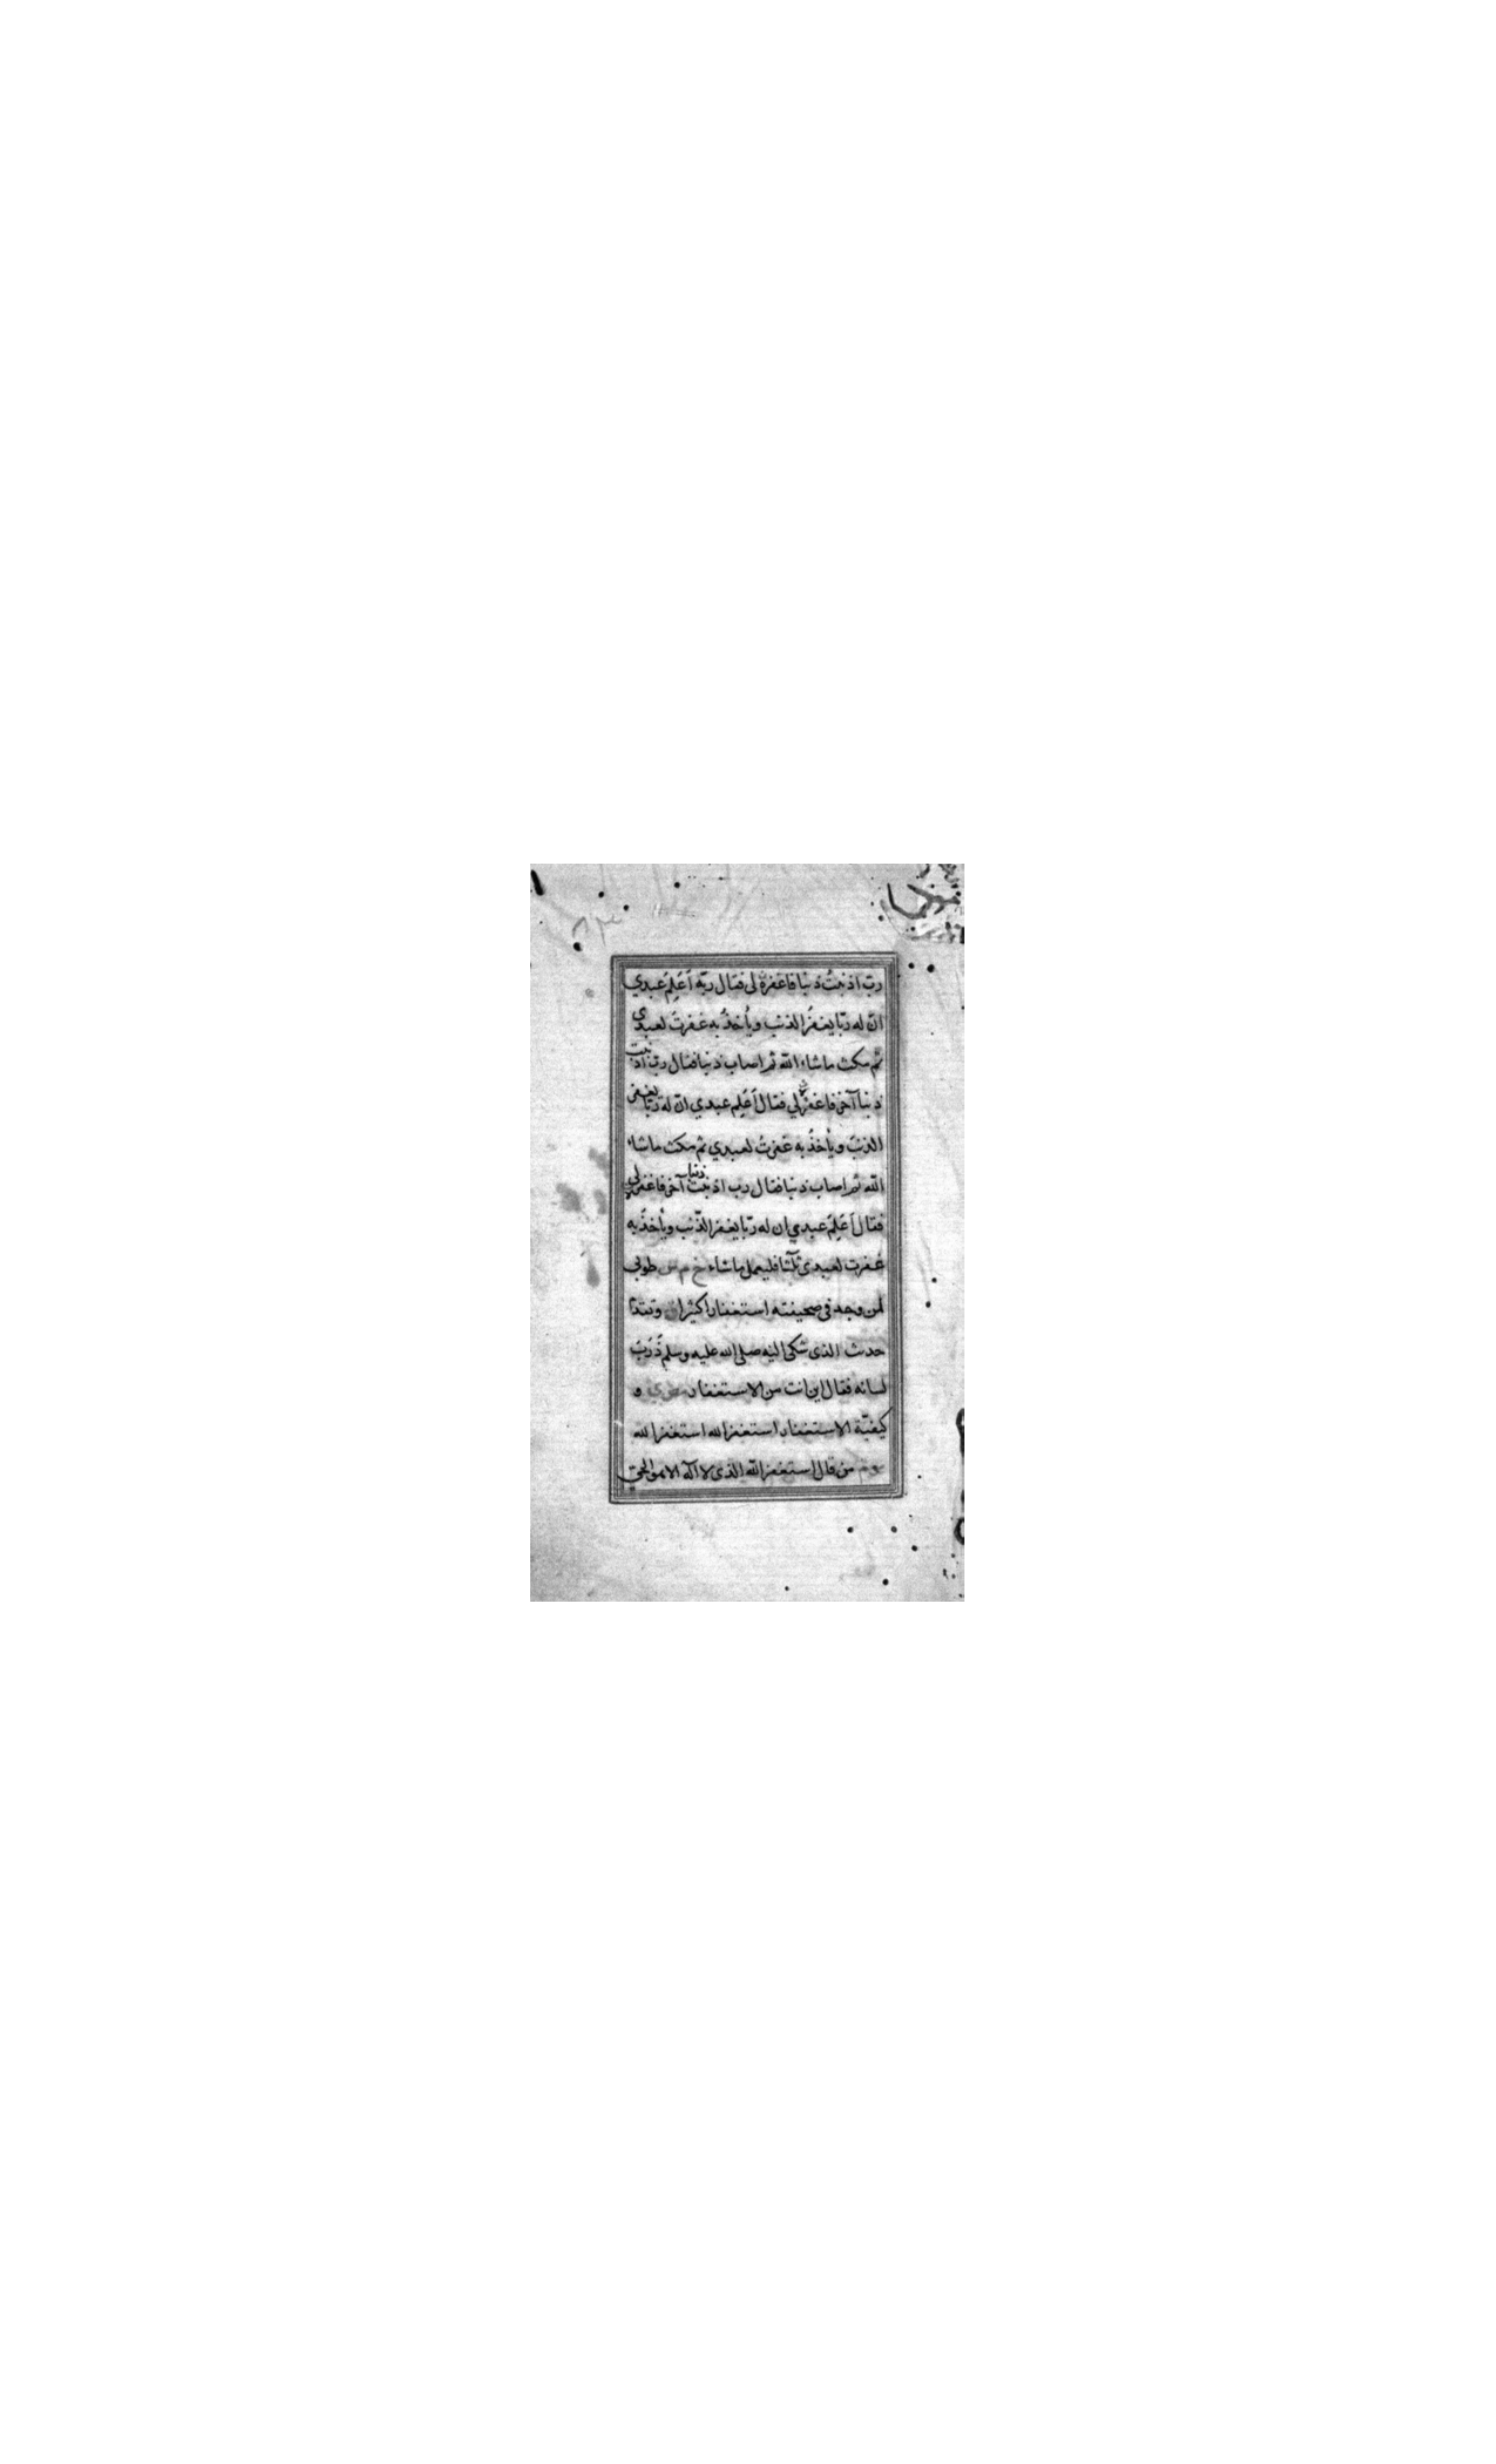 ربّ اذنبتُ ذنبا فاغفره لى فقال ربّه أَعَلِمَ عبدي
انّ له ربّا يغفرُ الذنب ويأخذُ به غفرتُ لعبدي
ثم مكث ماشاء الله ثم اصاب ذنبا فقال ربّ اذنبت
ذنبا آخر فاغفره لي فقال أَعَلِم عبدي انّ له ربّا يغفر
الذنبَ ويأخذُ به غفرتُ لعبدي ثم مكث ماشاء
الله ثم اصاب ذنبا فقال رب اذنبت ذنبا آخر فاغفره لي
فقال أَعَلِمَ عبدي ان له ربّا يغفر الذّنب ويأخذُ به
غفرت لعبدى ثلثًا فليعمل ماشاء خ م س طوبى
لمن وجد فى صحيفته استغفارا كثيرا ق وتقدم
حدث الذى شكى اليه صلى الله عليه وسلم ذَرَبَ
لسانه فقال اين انت من الاستغفار مص ي و
كيفيّة الاستغفار استغفر الله استغفر الله
من قال استغفر الله الذى لا اله الا هو الحيّ